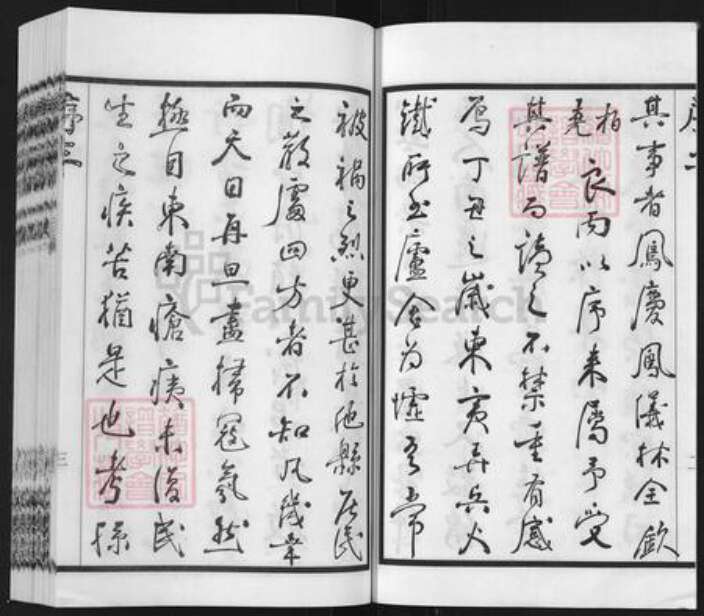 序二
其事者鳳慶鳳儀林全歐
柏堯良丙以序来屬予受
其譜而讀之不禁重有感
焉丁丑之歲東夷弄兵火
鐵所至廬舍为墟吾常
被禍之烈更甚於他縣居民
之散處四方者不知凡幾年
而天日再旦盡掃寇氛然
極目東南瘡痍未復民
生之疾苦猶是也考
序三
三
FamilySearch